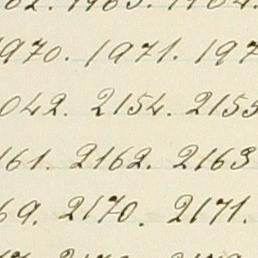 1970. 1971. 197
042. 2154. 2155
161. 2162. 2163
69. 2170. 2171.